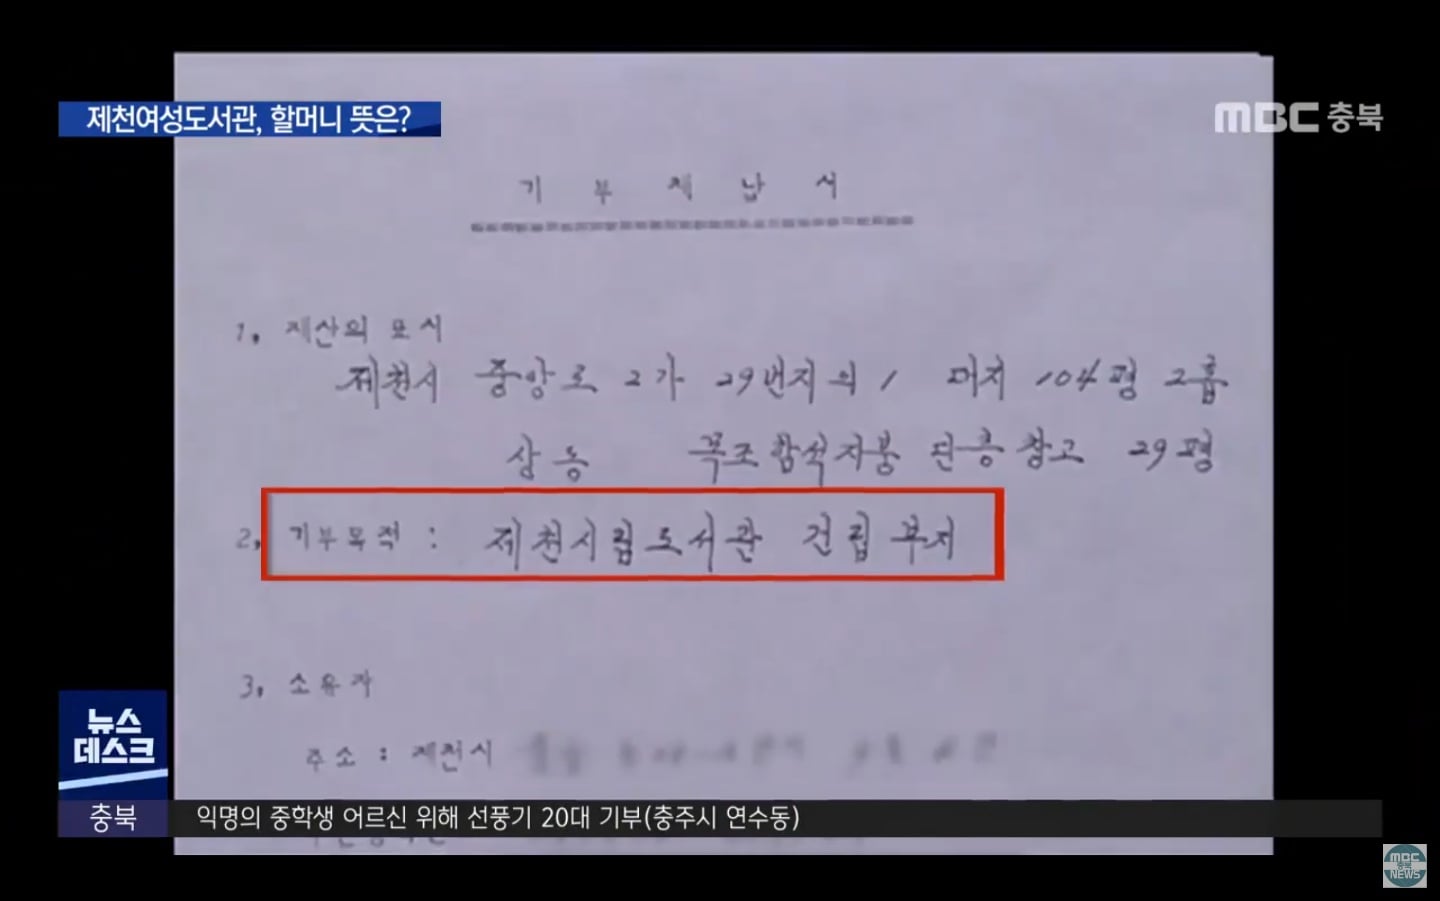 제천여성도서관, 할머니 뜻은?
MBC 충북
기 부 채 납 서
1, 재산의 표시
제천시 중앙로 2가 29번지의 1 대지 104평 2홉
상동 목조함석지붕 단층창고 29평
2, 기부목적 : 제천시립도서관 건립부지
3, 소유자
주소 : 제천시
뉴스
데스크
충북 익명의 중학생 어르신 위해 선풍기 20대 기부(충주시 연수동)
MBC
충북
NEWS